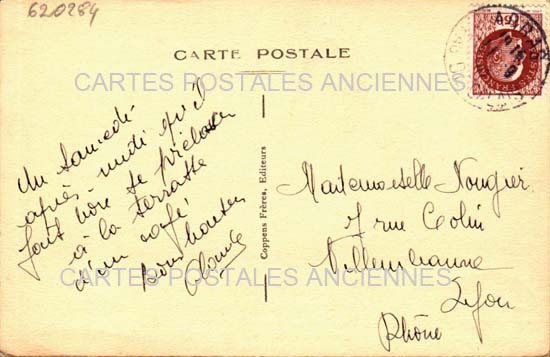 620284
CARTE POSTALE
CARTES POSTALES ANCIENNES
Un samedi
après-midi qu'il
fait bon se prélasser
à la terrasse
d'un café
Coppens Frères, Editeurs
Mademoiselle Nougier
7 rue Colin
Villeurbanne
Lyon
Rhône
CARTES POSTALES ANCIENNES